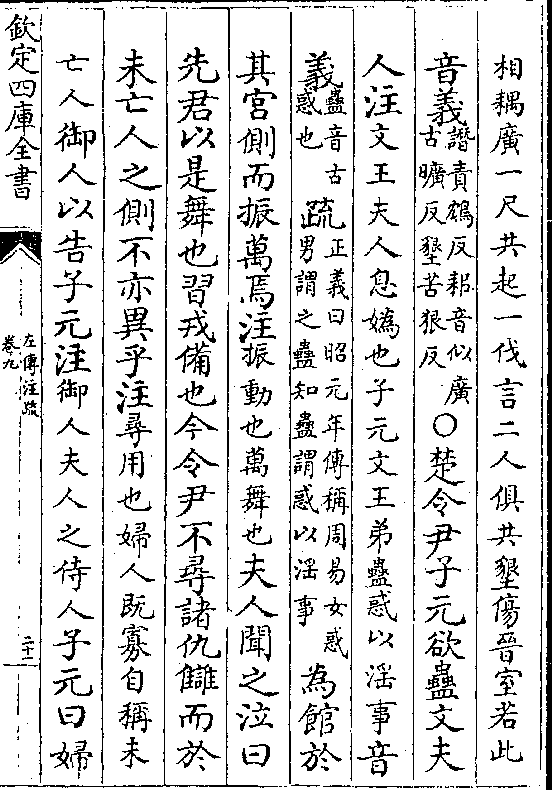 相耦廣一尺共起一伐言二人俱共墾傷晉室若此
音義譖責鴆反耜音似廣
古曠反墾苦狠反
〇楚令尹子元欲蠱文夫
人注文王夫人息媯也子元文王弟蠱惑以淫事音
義蠱音古
惑也
疏正義曰昭元年傳稱周易女惑
男謂之蠱知蠱謂惑以淫事
為館於
其宮側而振萬焉注振動也萬舞也夫人聞之泣曰
先君以是舞也習戎備也今令尹不尋諸仇讎而於
未亡人之側不亦異乎注尋用也婦人既寡自稱未
亡人御人以告子元注御人夫人之侍人子元曰婦
欽定四庫全書
左傳注疏
卷九
二十二